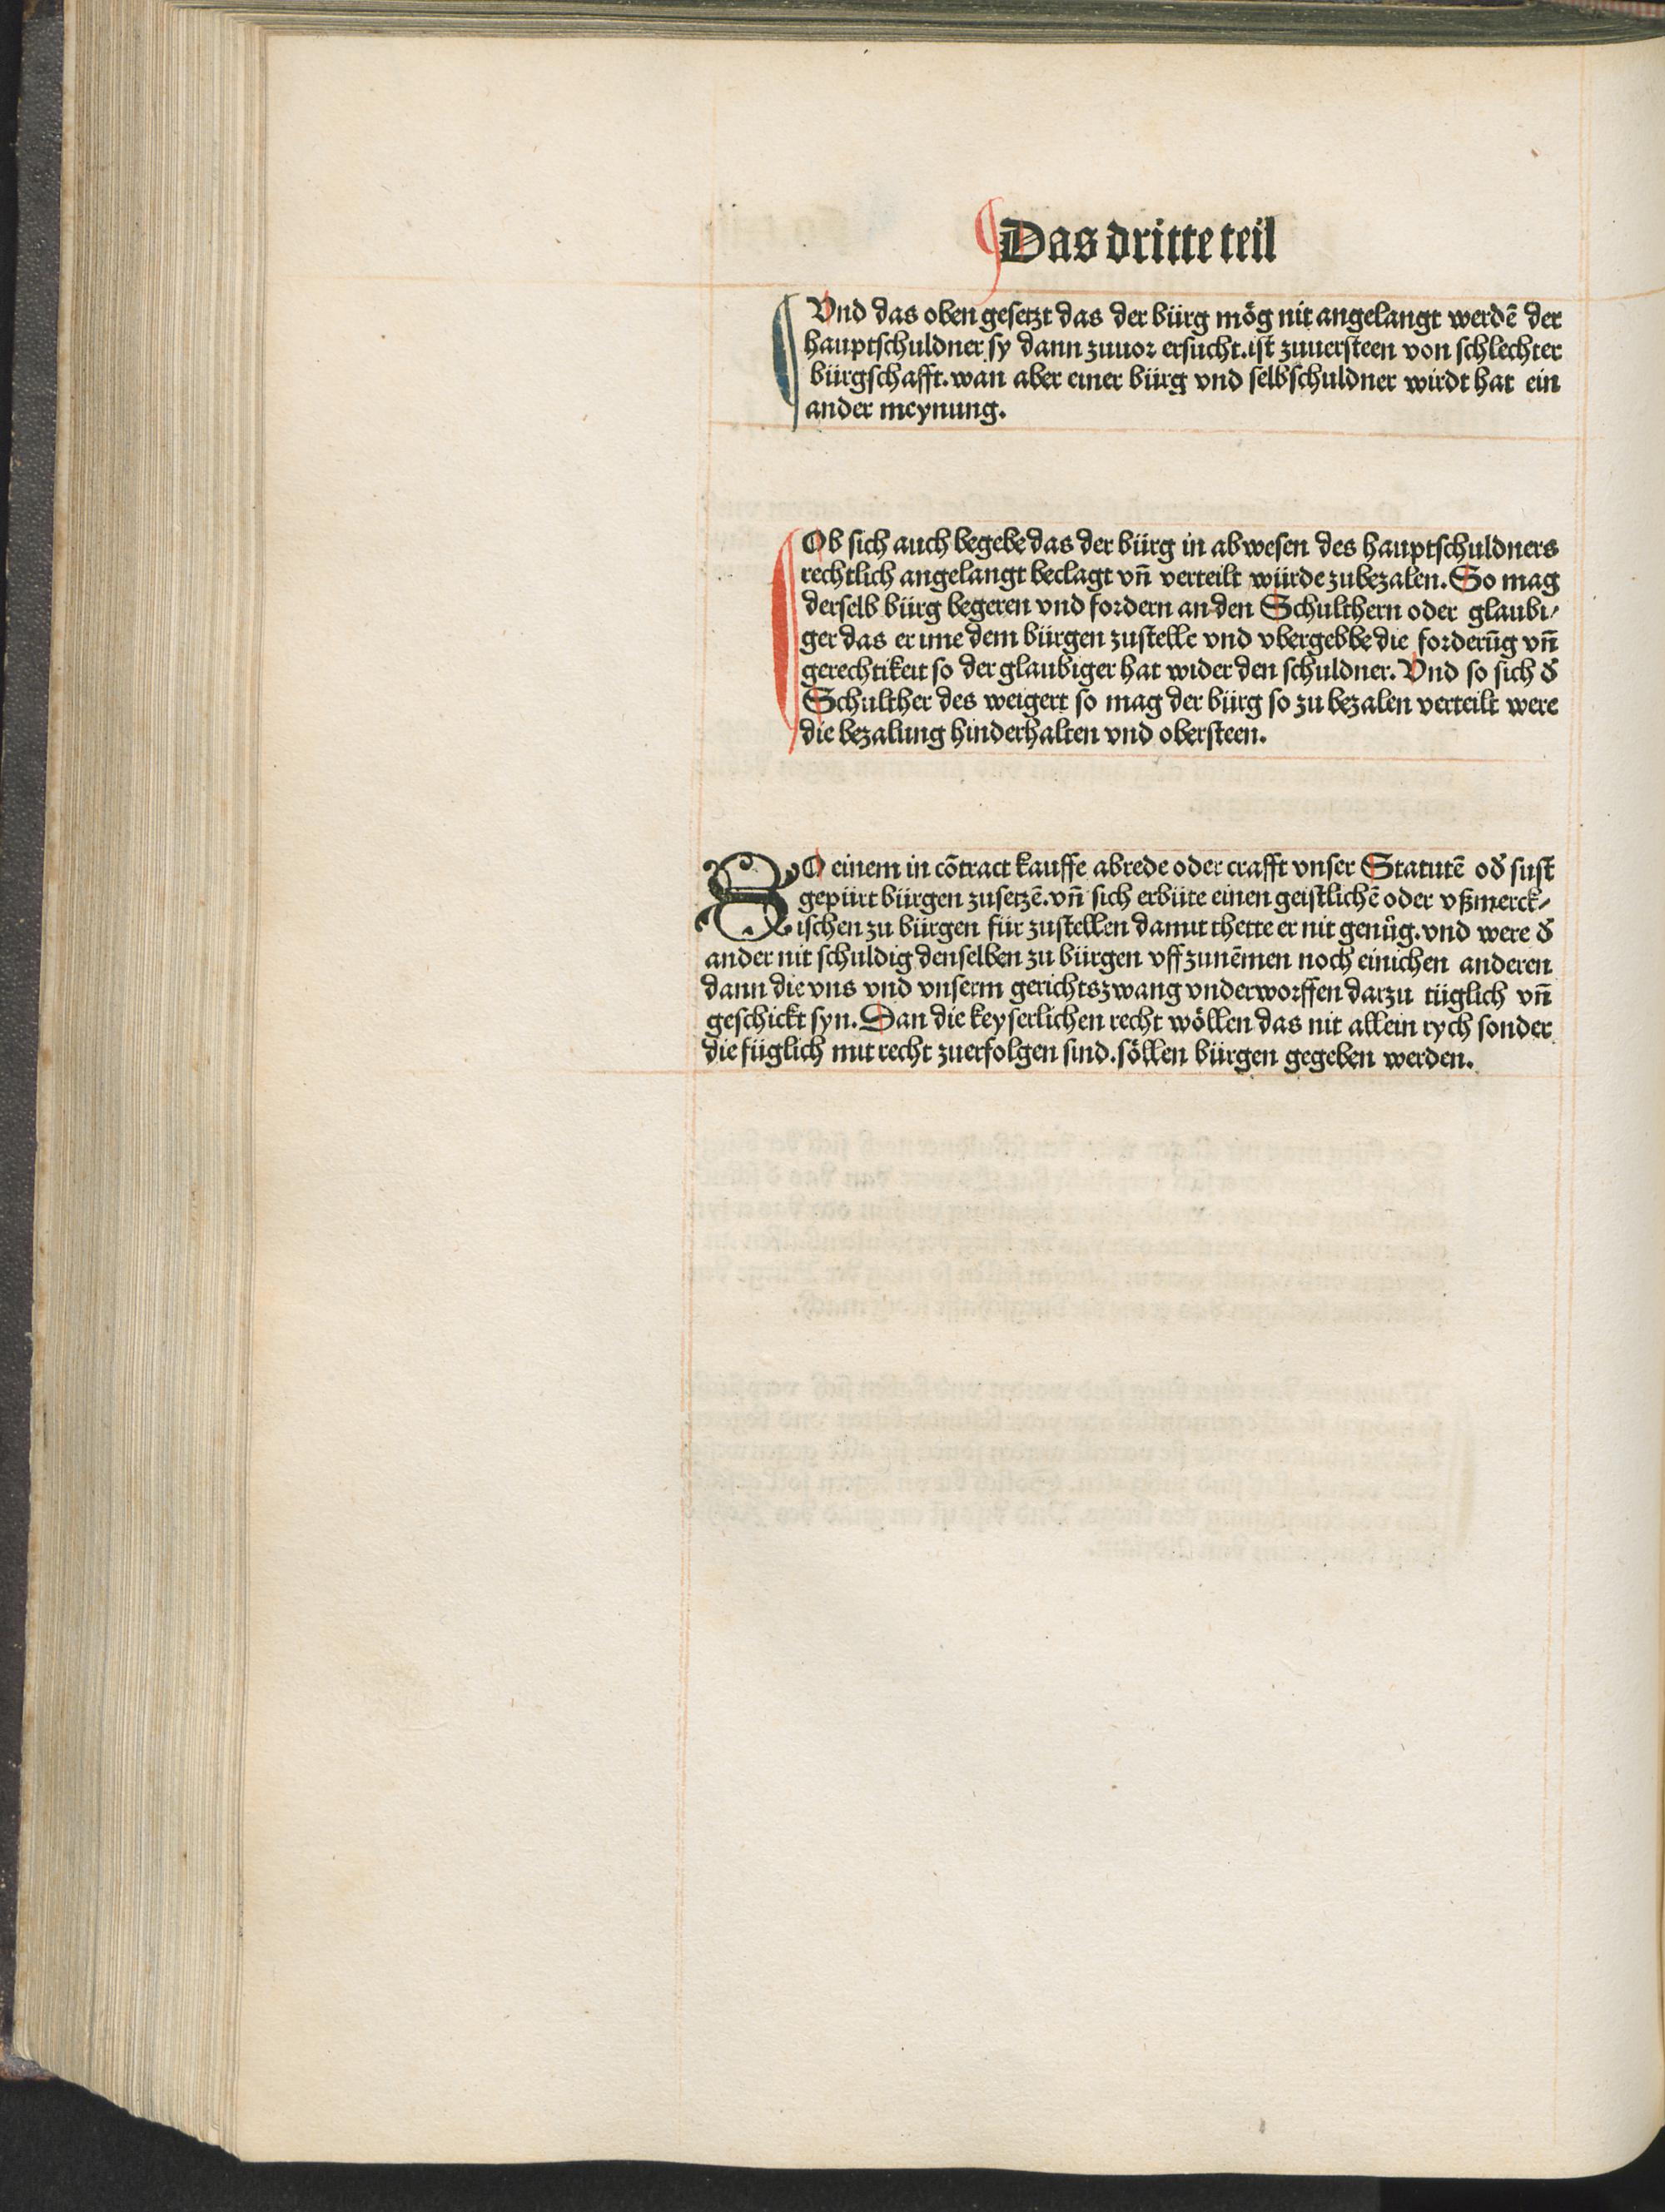 Das dritte teil
Vnd das oben gesetzt das der bürg mög nit angelangt werdē der
hauptschuldner sy dann zuuor ersucht. ist zuuersteen von schlechter
bürgschafft. wan aber einer bürg vnd selbschuldner wirdt hat ein
ander meynung.
Ob sich auch begebe das der bürg in abwesen des hauptschuldners
rechtlich angelangt beclagt vn̄ verteilt würde zubezalen. So mag
derselb bürg begeren vnd fordern an den Schulthern oder glaubi⸗
ger das er ime dem bürgen zustelle vnd vbergebbe die forderūg vn̄
gerechtikeit so der glaubiger hat wider den schuldner. Vnd so sich d̕
Schulther des weigert so mag der bürg so zu bezalen verteilt were
die bezalung hinderhalten vnd obersteen.
SO einem in cōtract kauffe abrede oder crafft vnser Statutē od̕ sust
gepürt bürgen zusetzē. vn̄ sich erbüte einen geistlichē oder vßmerck⸗
ischen zu bürgen für zustellen damit thette er nit genůg. vnd were d̕
ander nit schuldig denselben zu bürgen vff zunēmen noch einichen anderen
dann die vns vnd vnserm gerichtszwang vnderworffen darzu tüglich vn̄
geschickt syn. Dan die keyserlichen recht wöllen das nit allein rych sonder
die füglich mit recht zuerfolgen sind. söllen bürgen gegeben werden.